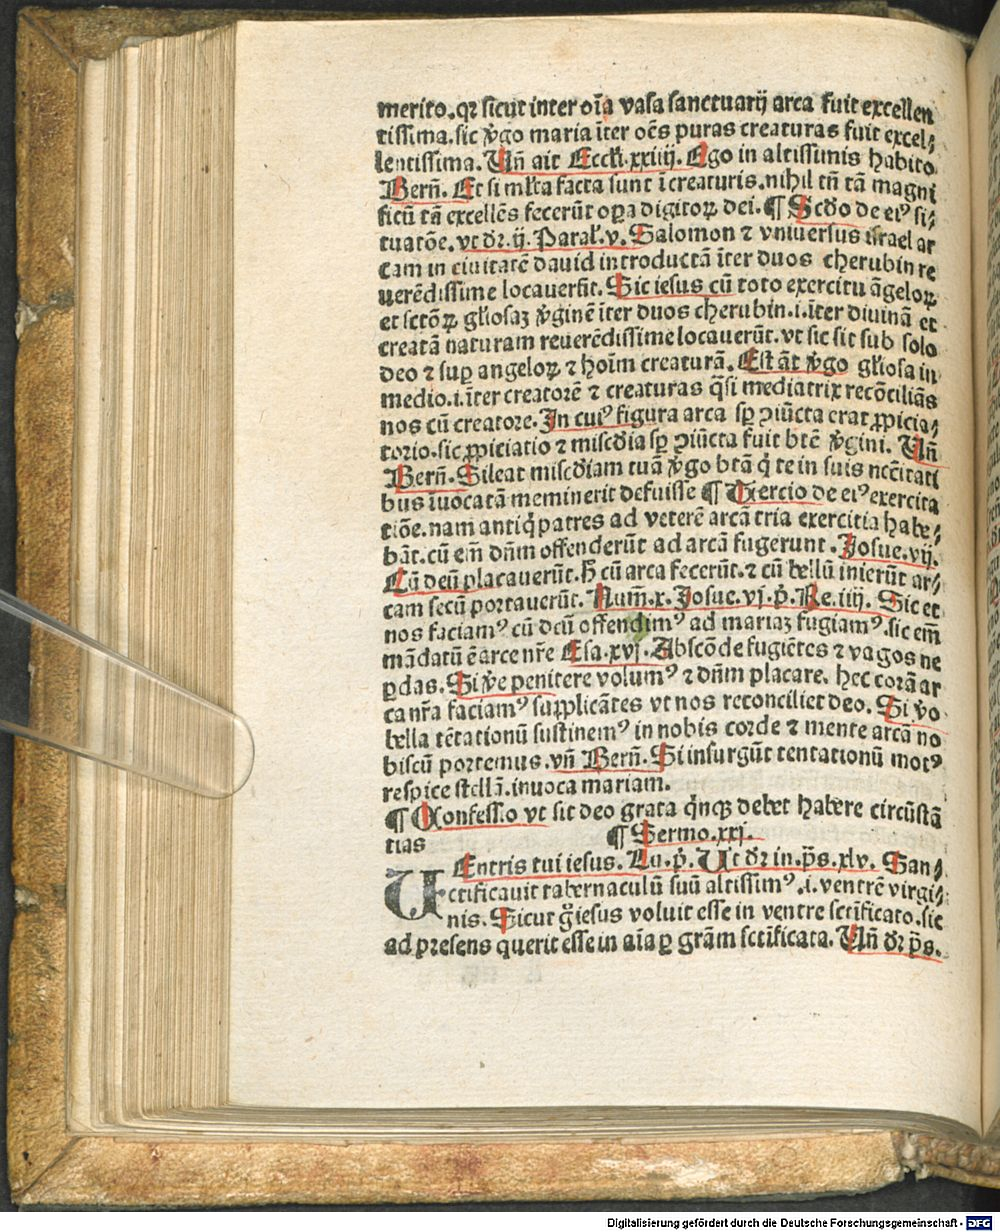 merito.qꝛ sicut inter oĩa vasa sanctuarij arca fuit excellen
tissima.sic v̾go maria ĩter oẽs puras creaturas fuit excel⸗
lentissima. Uñ ait Eccłi.xxiiij. Ego in altissimis habito
Berñ. Et si mlta facta sunt ĩ creaturis.nihil tñ tã magni
ficũ tã excellẽs fecerũt oꝑa digitoꝝ dei. ¶ Scd̾o de eiꝰ si⸗
tuatõe.vt dr̃.ij.Paraƚ.v. Salomon ⁊ vniuersus israel ar
cam in ciuitatẽ dauid introductã ĩter duos cherubin re
uerẽdissime locauerũt. Sic iesus cũ toto exercitu ãgeloꝝ
et sctõꝝ gƚiosaꝫ v̾ginẽ ĩter duos cherubin.i.ĩter diuinã et
creatã naturam reuerẽdissime locauerũt.vt sic sit sub solo
deo ⁊ suꝑ angeloꝝ ⁊ hoĩm creaturã. Est aũt v̾go gƚiosa in
medio.i.ĩter creatorẽ ⁊ creaturas q̃si mediatrix recõciliãs
nos cũ creatore. In cuiꝰ figura arca sꝑ ꝯiũcta erat ꝓpicia⸗
torio.sic ꝓpiciatio ⁊ misc̃dia sꝑ ꝯiũcta fuit btẽ v̾gini. Uñ
Berñ. Sileat misc̃diam tuã v̾go btã q̇ te in suis nccĩtati
bus ĩuocatã meminerit defuisse ¶ Tercio de eiꝰ exercita
tiõe.nam antiq̇ patres ad veterẽ arcã tria exercitia habe⸗
bãt.cũ em̃ dñm offenderũt ad arcã fugerunt. Josue.vij.
Cũ deũ placauerũt.h̃ cũ arca fecerũt.⁊ cũ bellũ inierũt ar⸗
cam secũ portauerũt. Num̃.x. Josue.vj.p̃. Re.iiij. Sic et
nos faciamꝰ cũ deũ offendimꝰ ad mariaꝫ fugiamꝰ.sic em̃
mãdatũ ẽ arce nr̃e Esa.xvj. Abscõde fugiẽtes ⁊ vagos ne
ꝑdas. Si v̾e penitere volumꝰ ⁊ dñm placare. hec corã ar
ca nr̃a faciamꝰ supplicãtes vt nos reconciliet deo. Si v̾o
bella tẽtationũ sustinemꝰ in nobis corde ⁊ mente arcã no
biscũ portemus.vñ Berñ. Si insurgũt tentationũ motꝰ
respice stellã.inuoca mariam.
¶ Confess.o vt sit deo grata q̃nqꝫ debet habere circũstã
tias ¶ Sermo.xxj.
UEntris tui iesus. Lu.p̃. Ut dr̃ in.p̃s.xlv. San⸗
ctificauit tabernaculũ suũ altissimꝰ.i.ventrẽ virgi⸗
nis. Sicut g̃ iesus voluit esse in ventre sctĩficato.sic
ad presens querit esse in aĩa ꝑ grãm sctĩficata. Uñ dr̃ p̃s.
Digitalisierung gefördert durch die Deutsche Forschungsgemeinschaft - DFG